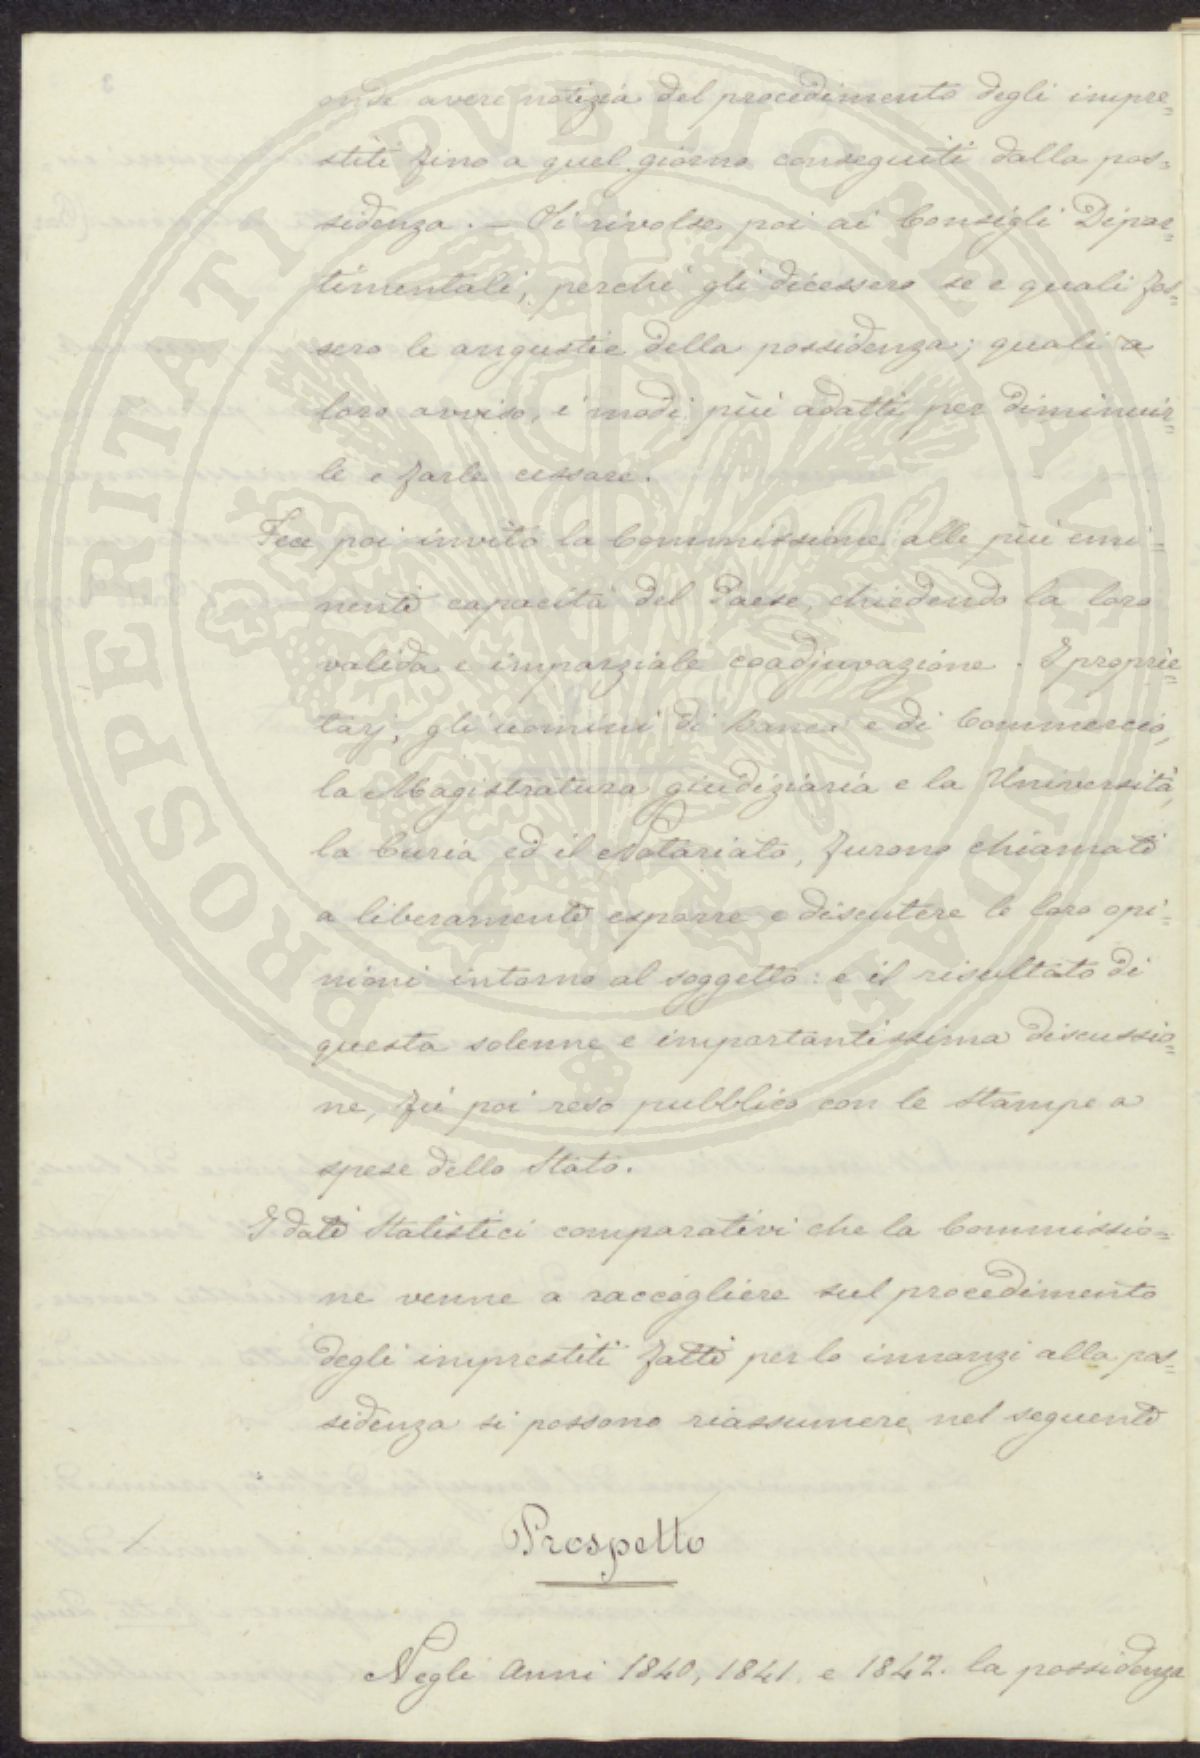 onde avere notizia del procedimento degli impre=
stiti fino a quel giorno conseguiti dalla pos=
sidenza. — Si rivolse poi ai Consigli Dipar=
timentali, perchè gli dicessero se e quali fos=
sero le angustie della possidenza; quali a
loro avviso, i modi più adatti per diminuir=
le e farle cessare.
Fece poi invito la Commissione alle più emi=
nenti capacità del Paese, chiedendo la loro
valida e imparziale coadjuvazione. I proprie=
tarj, gli uomini di banca e di Commercio,
la Magistratura giudiziaria e la Università,
la Curia ed il Notariato, furono chiamati
a liberamente esporre e discutere le loro opi=
nioni intorno al soggetto: e il risultato di
questa solenne e importantissima discussio=
ne, fù poi reso pubblico con le stampe a
spese dello Stato.
I dati Statistici comparativi che la Commissio=
ne venne a raccogliere sul procedimento
degli imprestiti fatti per lo innanzi alla pos=
sidenza si possono riassumere nel seguente
Prospetto
Negli Anni 1840, 1841. e 1842. la possidenza
PROSPERITATI PVBLICAE AVGENDAE